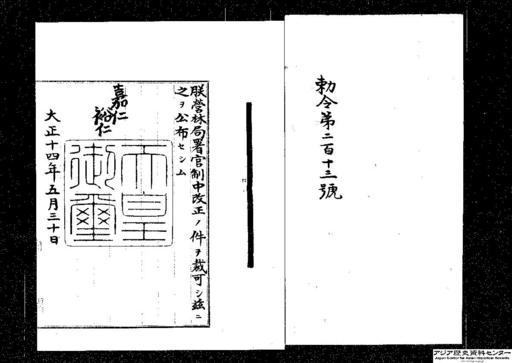 勅令第二百十三號
朕営林局署官制中改正ノ件ヲ裁可シ玆ニ
之ヲ公布セシム
嘉仁
裕仁
天皇
御璽
大正十四年五月三十日
アジア歴史資料センター
Japan Center for Asian Historical Records